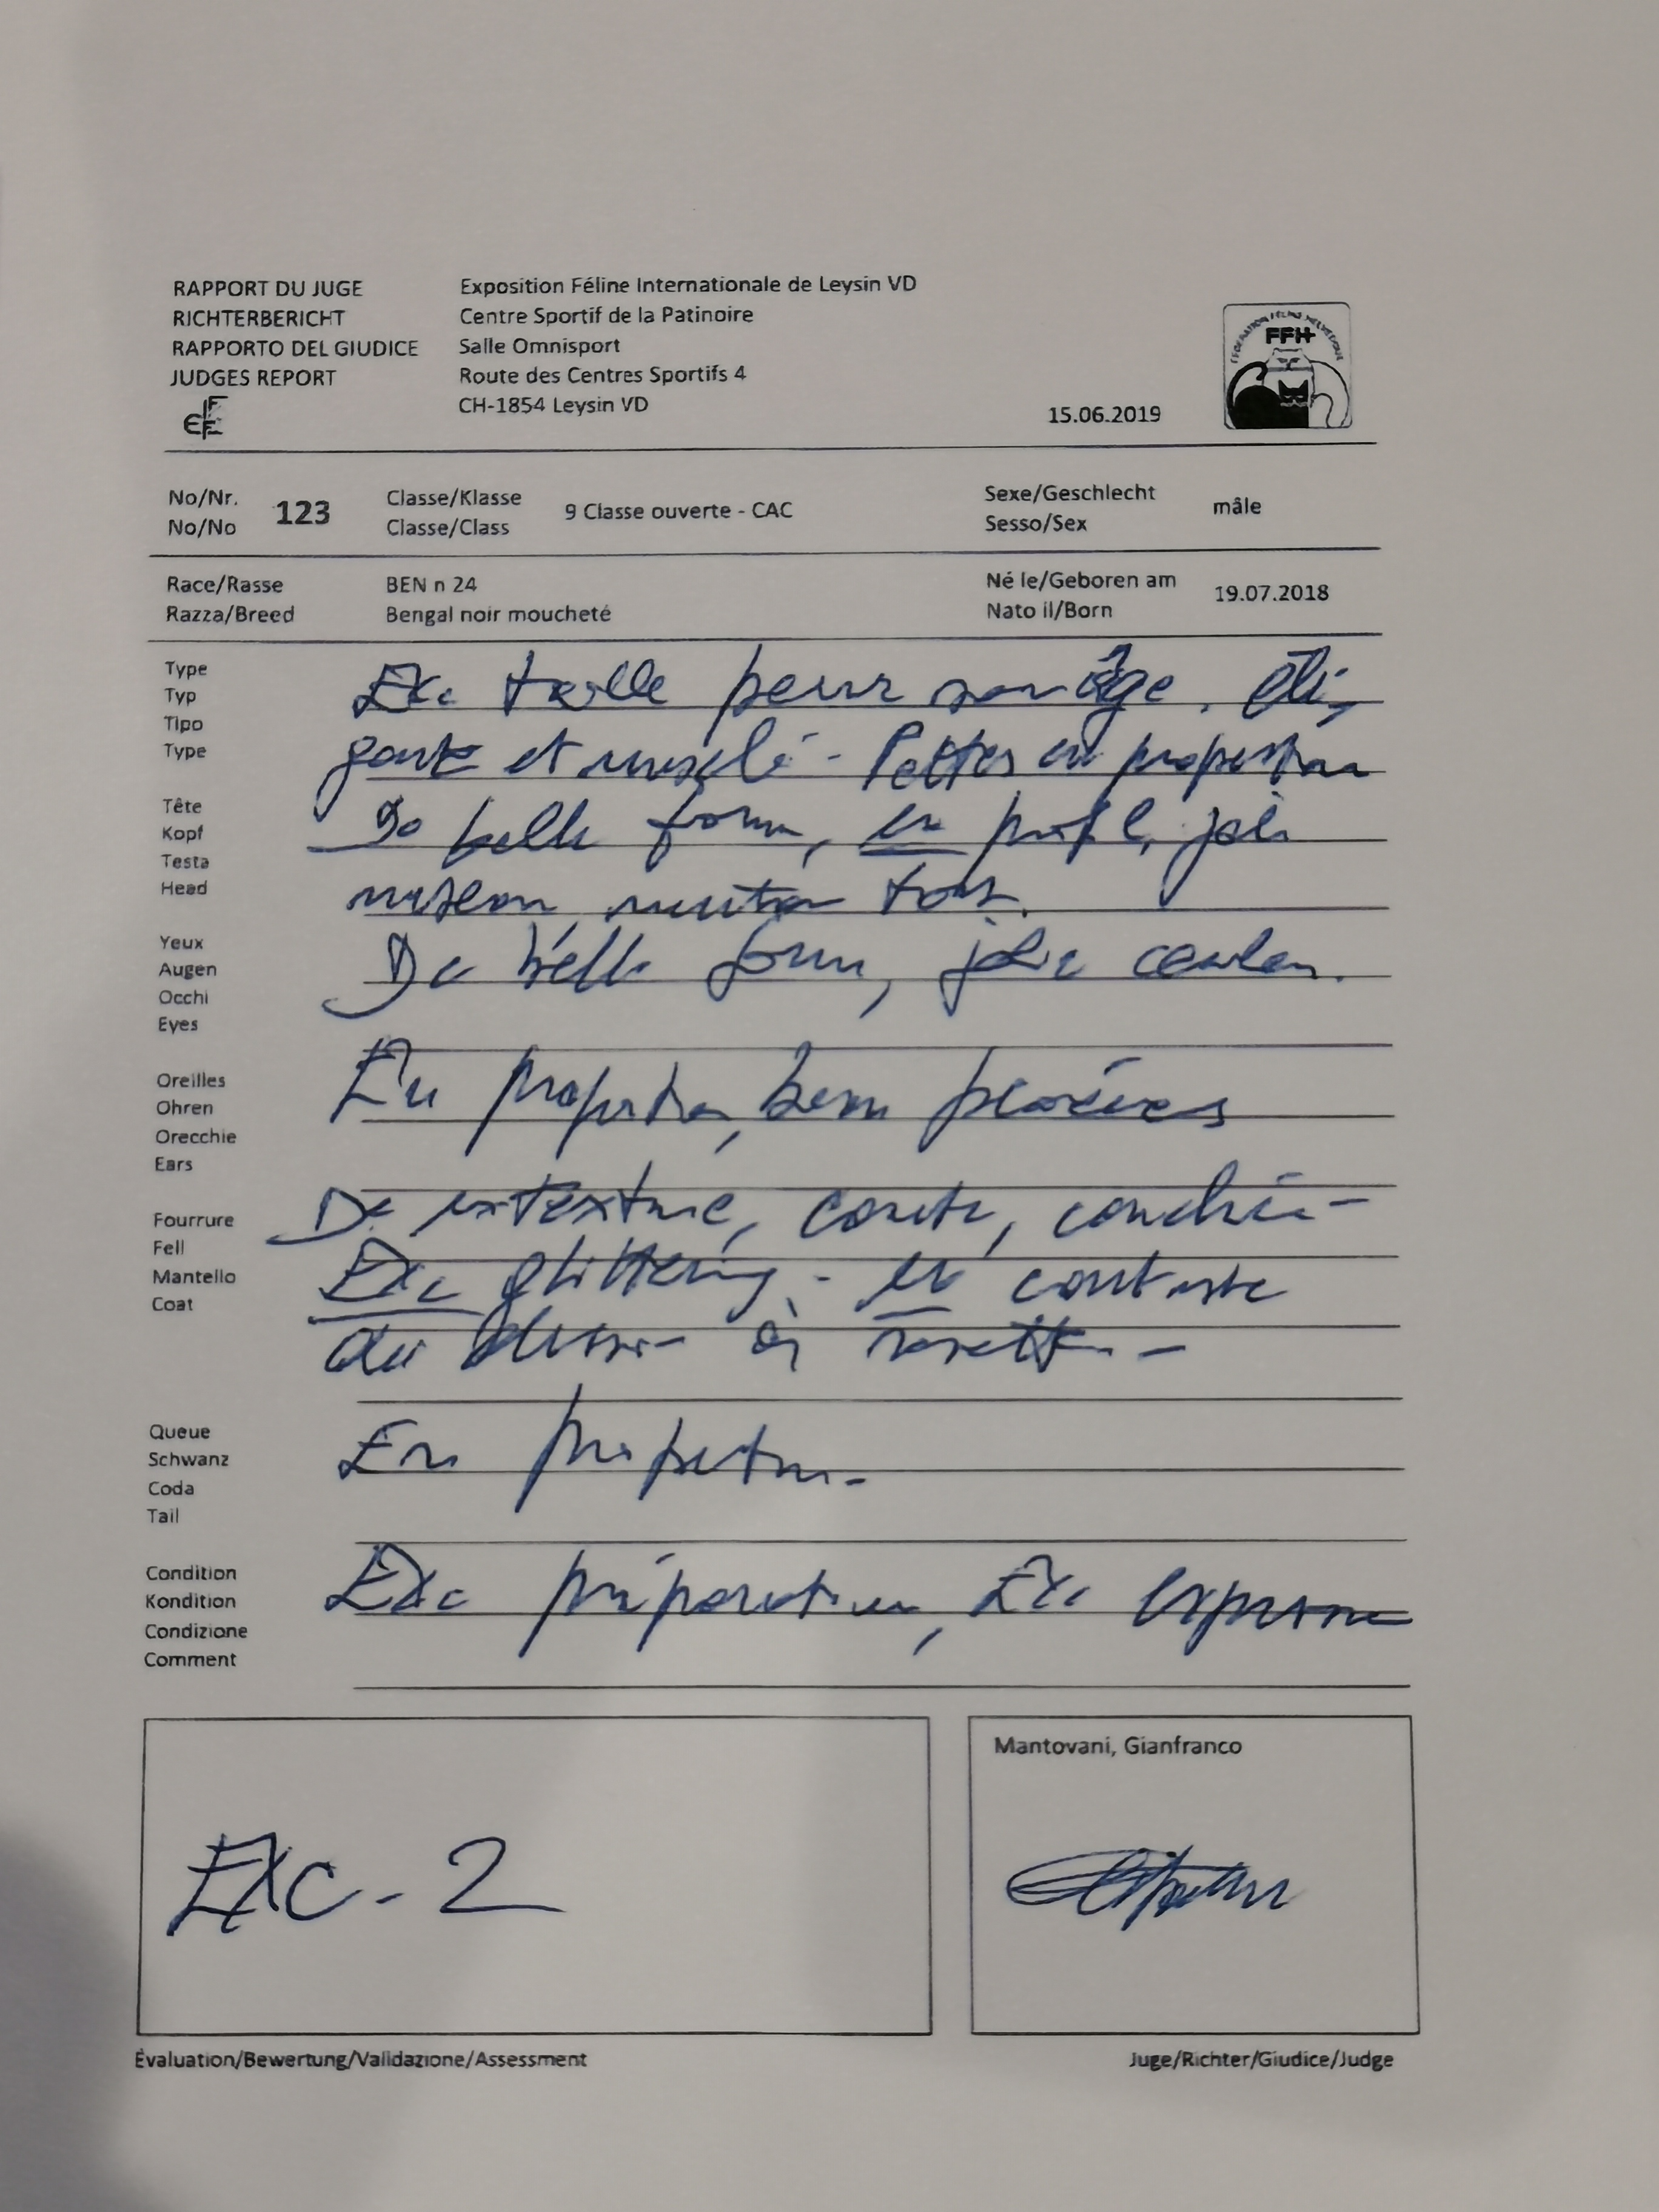 RAPPORT DU JUGE
RICHTERBERICHT
RAPPORTO DEL GIUDICE
JUDGES REPORT
Exposition Féline Internationale de Leysin VD
Centre Sportif de la Patinoire
Salle Omnisport
Route des Centres Sportifs 4
CH-1854 Leysin VD
15.06.2019
FÉDÉRATION FÉLINE HELVÉTIQUE
FFH
No/Nr.
No/No
123
Classe/Klasse
Classe/Class
9 Classe ouverte - CAC
Sexe/Geschlecht
Sesso/Sex
mâle
Race/Rasse
Razza/Breed
BEN n 24
Bengal noir moucheté
Né le/Geboren am
Nato il/Born
19.07.2018
Type
Typ
Tipo
Type
Exc taille pour son âge. Élé-
gant et musclé - Pattes en proportion
Tête
Kopf
Testa
Head
De belle forme, ex profil, joli
museau, menton
Yeux
Augen
Occhi
Eyes
De belle forme, jolie couleur.
Oreilles
Ohren
Orecchie
Ears
En proportion, bien placées
Fourrure
Fell
Mantello
Coat
De ex texture, courte, couchée -
Exc glittering - ex contraste
du dessin à rosettes -
Queue
Schwanz
Coda
Tail
En proportion -
Condition
Kondition
Condizione
Comment
Exc préparation, Exc expression
EXC - 2
Mantovani, Gianfranco
Évaluation/Bewertung/Validazione/Assessment
Juge/Richter/Giudice/Judge